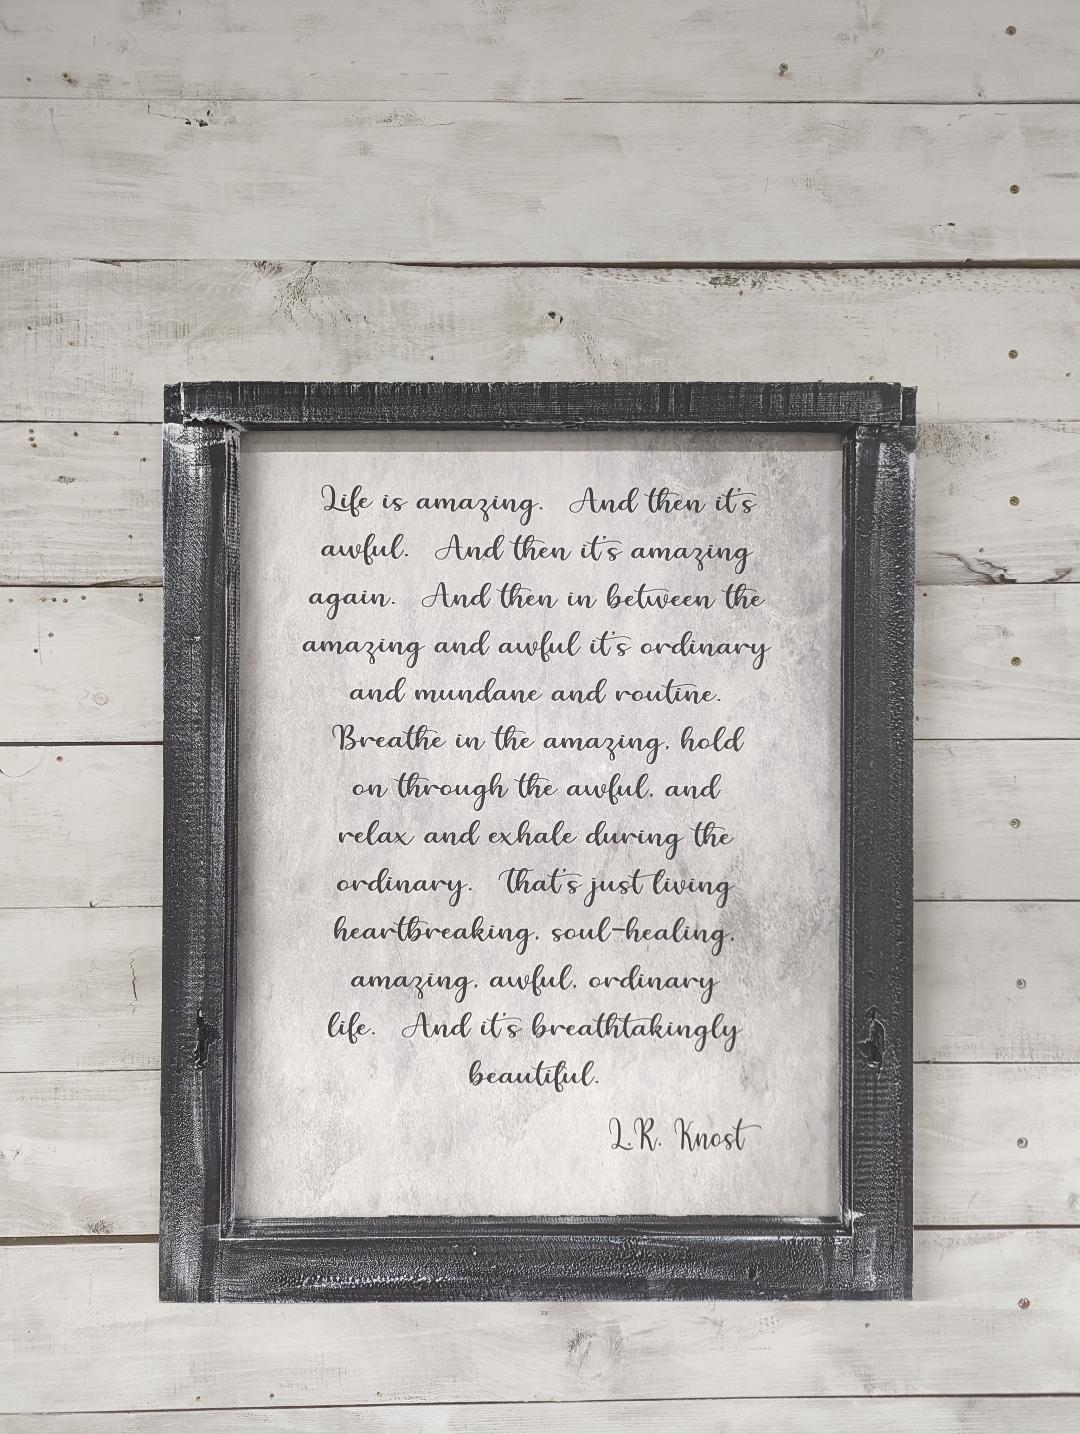 Life is amazing. And then it's
awful. And then it's amazing
again. And then in between the
amazing and awful it's ordinary
and mundane and routine.
Breathe in the amazing, hold
on through the awful, and
relax and exhale during the
ordinary. That's just living
heartbreaking, soul-healing,
amazing, awful, ordinary
life. And it's breathtakingly
beautiful.
L.R. Knost